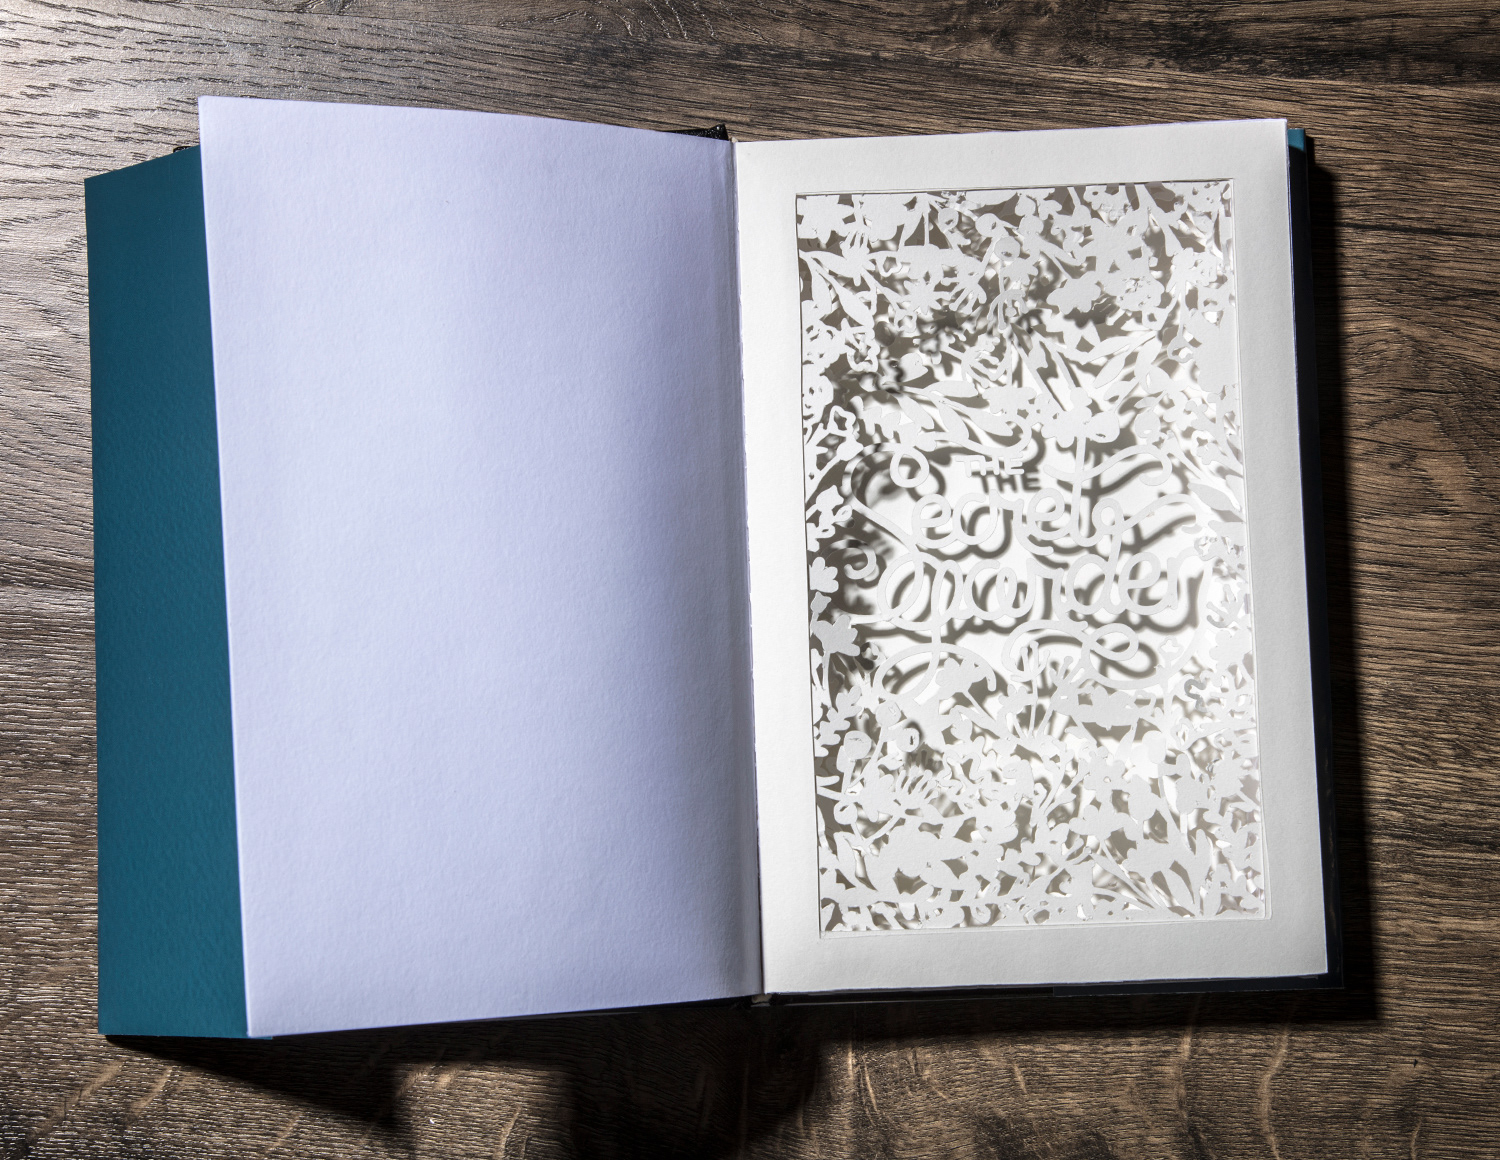 THE
Secret
Garden